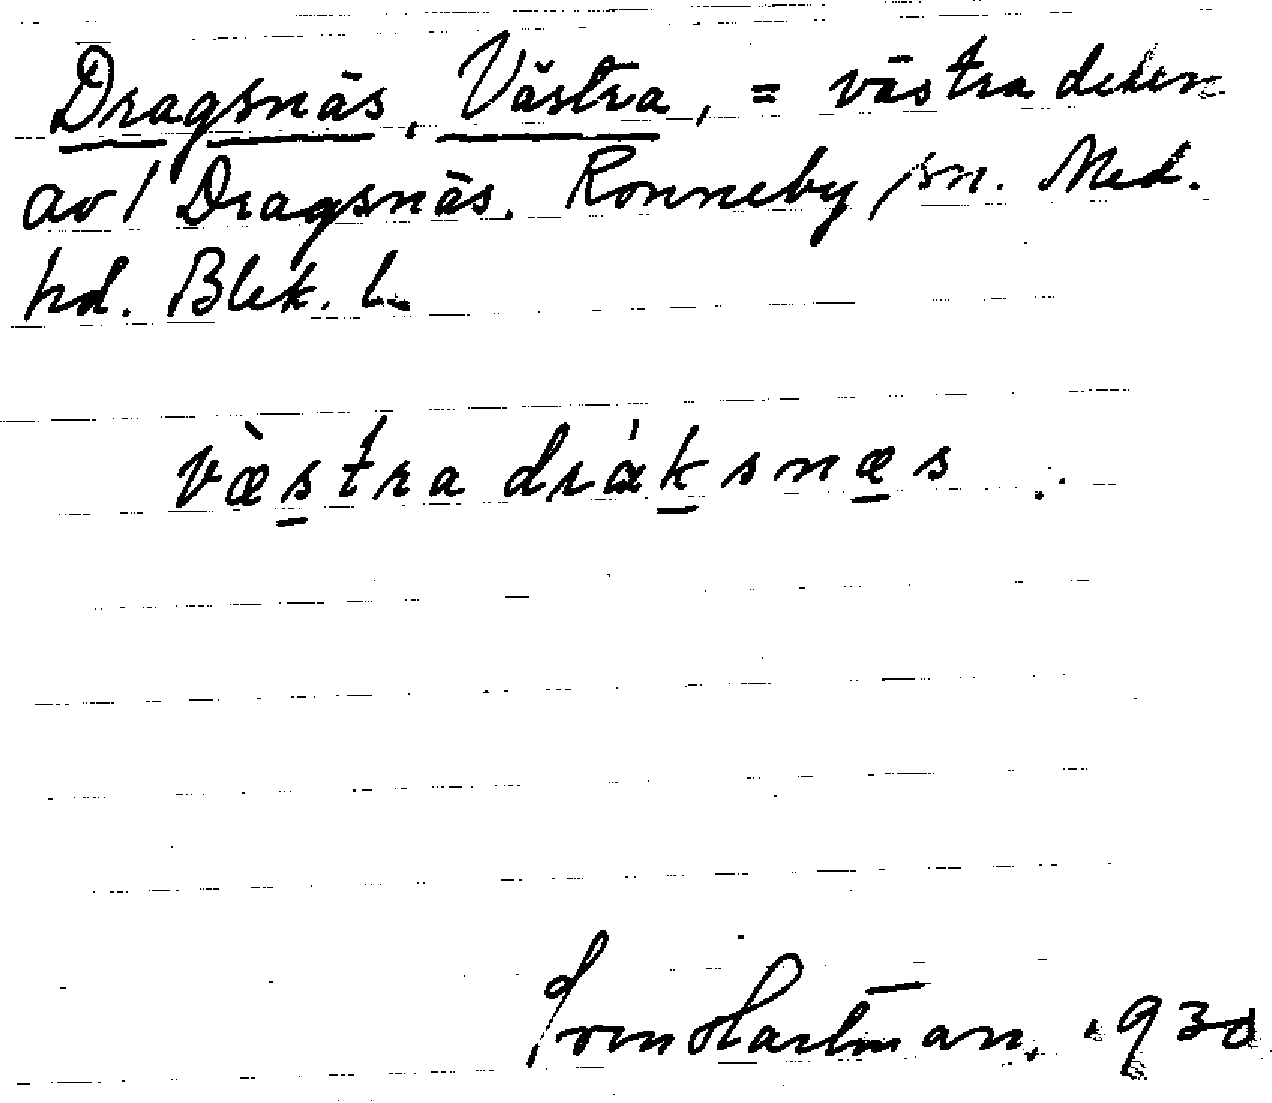 Dragsnäs, Västra, = västra delen
av / Dragsnäs. Ronneby sn. Med.
hd. Blek. L.
væ̀stra dráksnæs .
Sven Hartman. 1930